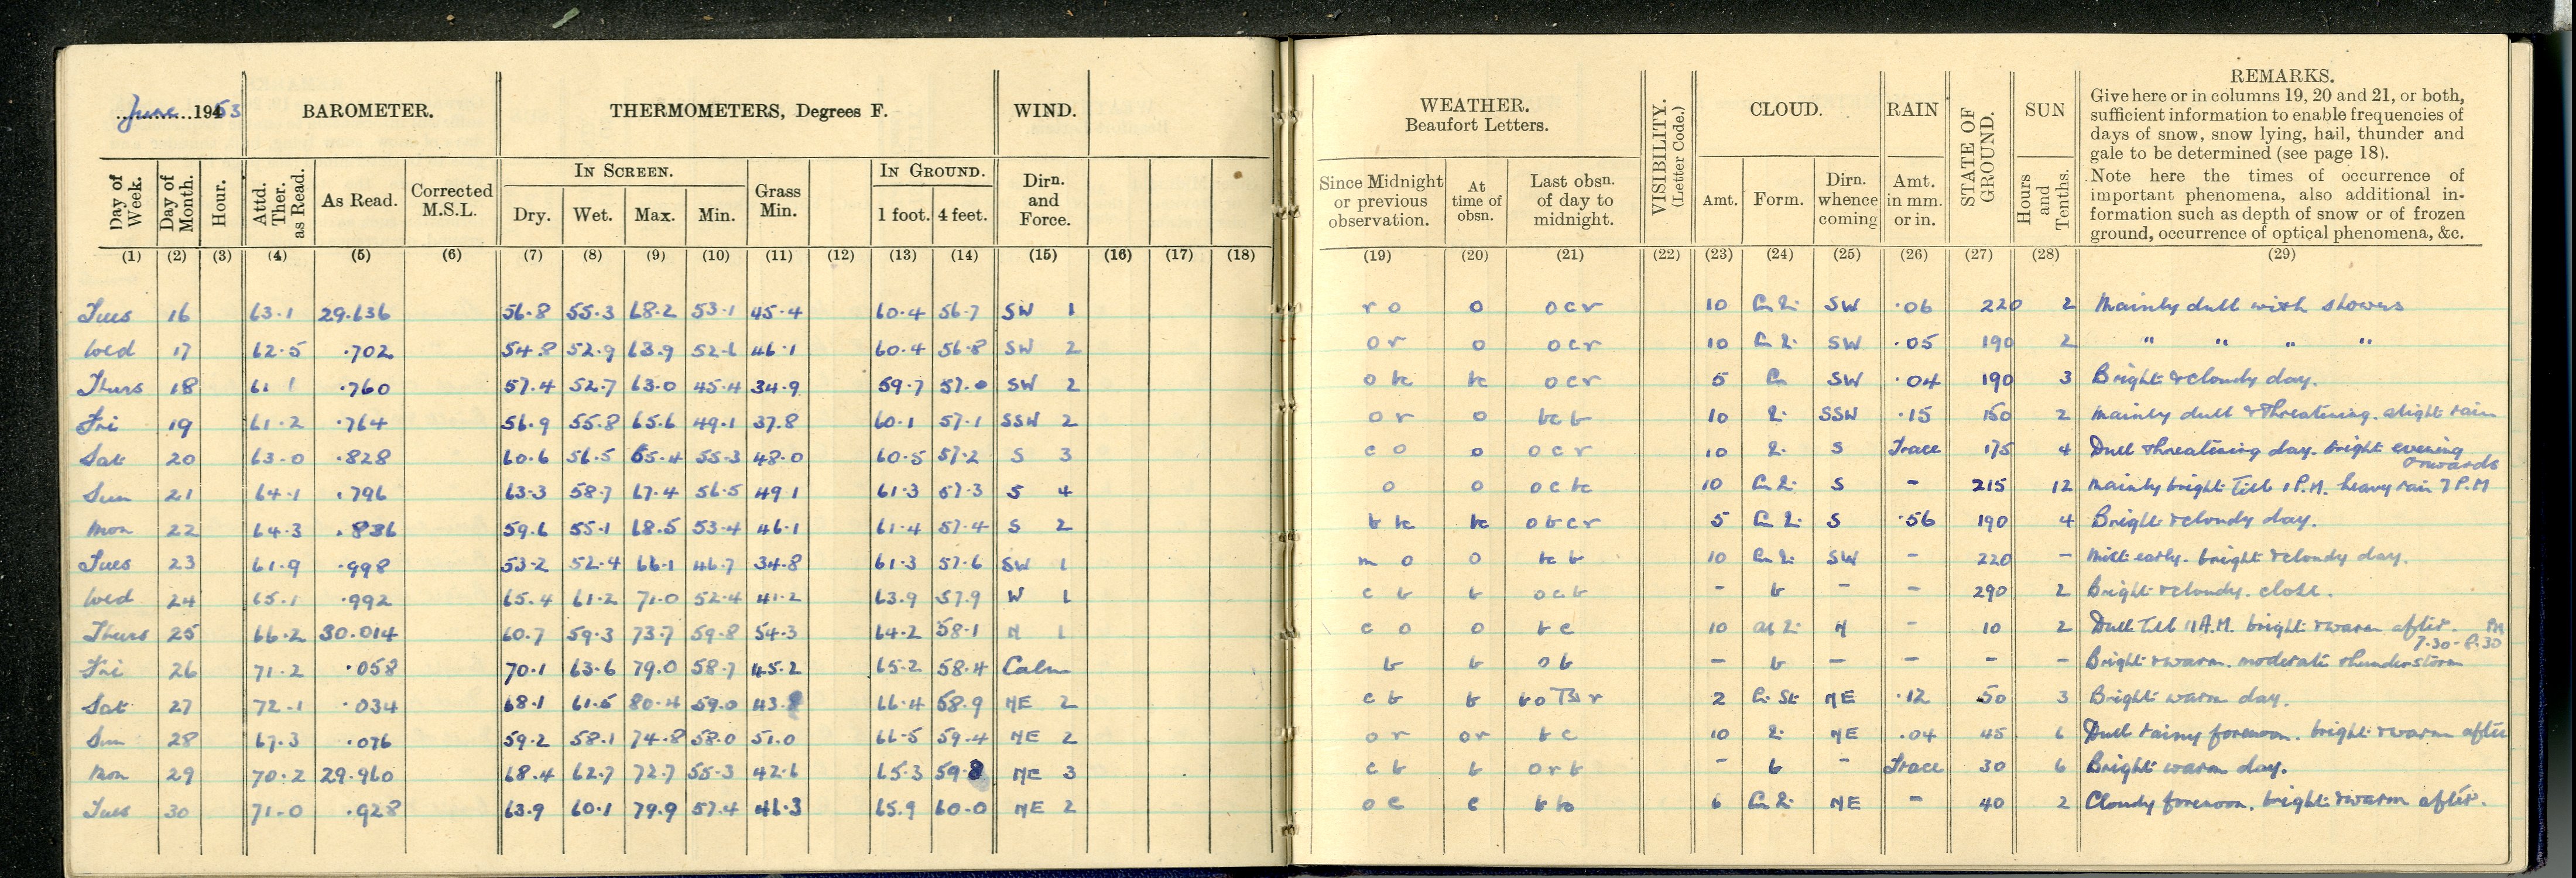 June 1953
BAROMETER.
THERMOMETERS, Degrees F.
WIND.
WEATHER.
Beaufort Letters.
VISIBILITY.
(Letter Code.)
CLOUD.
RAIN
STATE OF
GROUND.
SUN
REMARKS.
Give here or in columns 19, 20 and 21, or both,
sufficient information to enable frequencies of
days of snow, snow lying, hail, thunder and
gale to be determined (see page 18).
Note here the times of occurrence of
important phenomena, also additional in-
formation such as depth of snow or of frozen
ground, occurrence of optical phenomena, &c.
Day of Week.
Day of Month.
Hour.
Attd. Ther. as Read.
As Read.
Corrected M.S.L.
IN SCREEN.
Dry. Wet. Max. Min.
Grass Min.
IN GROUND.
1 foot. 4 feet.
Dirn. and Force.
Since Midnight or previous observation.
At time of obsn.
Last obsn. of day to midnight.
Amt. Form. Dirn. whence coming
Amt. in mm. or in.
Hours and Tenths.
(1) (2) (3) (4) (5) (6) (7) (8) (9) (10) (11) (12) (13) (14) (15) (16) (17) (18) (19) (20) (21) (22) (23) (24) (25) (26) (27) (28) (29)
Tues 16 63.1 29.636 56.8 55.3 68.2 53.1 45.4 60.4 56.7 SW 1 r o o o c r 10 SW .06 220 2 Mainly dull with showers
Wed 17 62.5 .702 54.8 52.9 63.9 52.6 46.1 60.4 56.8 SW 2 o r o o c r 10 SW .05 190 2 " " " "
Thurs 18 61.1 .760 57.4 52.7 63.0 45.4 34.9 59.7 57.0 SW 2 o bc bc o c r 5 SW .04 190 3 Bright & cloudy day.
Fri 19 61.2 .764 56.9 55.8 65.6 49.1 37.8 60.1 57.1 SSW 2 o r o bc b 10 SSW .15 150 2 Mainly dull & threatening. slight rain
Sat 20 63.0 .828 60.6 56.5 65.4 55.3 48.0 60.5 57.2 S 3 c o o o c r 10 S Trace 175 4 Dull threatening day. bright evening onwards
Sun 21 64.1 .796 63.3 58.7 67.4 56.5 49.1 61.3 57.3 S 4 o o o c bc 10 S - 215 12 Mainly bright till 1 P.M. heavy rain 7 P.M
Mon 22 64.3 .836 59.6 55.1 68.5 53.4 46.1 61.4 57.4 S 2 b bc bc o b c r 5 S .56 190 4 Bright & cloudy day.
Tues 23 61.9 .998 53.2 52.4 66.1 46.7 34.8 61.3 57.6 SW 1 m o o bc b 10 SW - 220 - Mist early. bright & cloudy day.
Wed 24 65.1 .992 65.4 61.2 71.0 52.4 41.2 63.9 57.9 W 1 c b b o c b - b - - 290 2 Bright & cloudy. close.
Thurs 25 66.2 30.014 60.7 59.3 73.7 59.8 54.3 64.2 58.1 N 1 c o o b c 10 N - 10 2 Dull till 11 A.M. bright & warm after.
Fri 26 71.2 .058 70.1 63.6 79.0 58.7 45.2 65.2 58.4 Calm b b o b - b - - - - Bright & warm. moderate thunderstorm 7.30 - 8.30 PM
Sat 27 72.1 .034 68.1 61.5 80.4 59.0 43.8 66.4 58.9 NE 2 c b b 2 NE .12 50 3 Bright warm day.
Sun 28 67.3 .076 59.2 58.1 74.8 58.0 51.0 66.5 59.4 NE 2 o r o r b c 10 NE .04 45 6 Dull rainy forenoon. bright & warm after
Mon 29 70.2 29.960 68.4 62.7 72.7 55.3 42.6 65.3 59.8 NE 3 c b b o r b - b - Trace 30 6 Bright warm day.
Tues 30 71.0 .928 63.9 60.1 79.9 57.4 46.3 65.9 60.0 NE 2 o c c 6 NE - 40 2 Cloudy forenoon. bright & warm after.